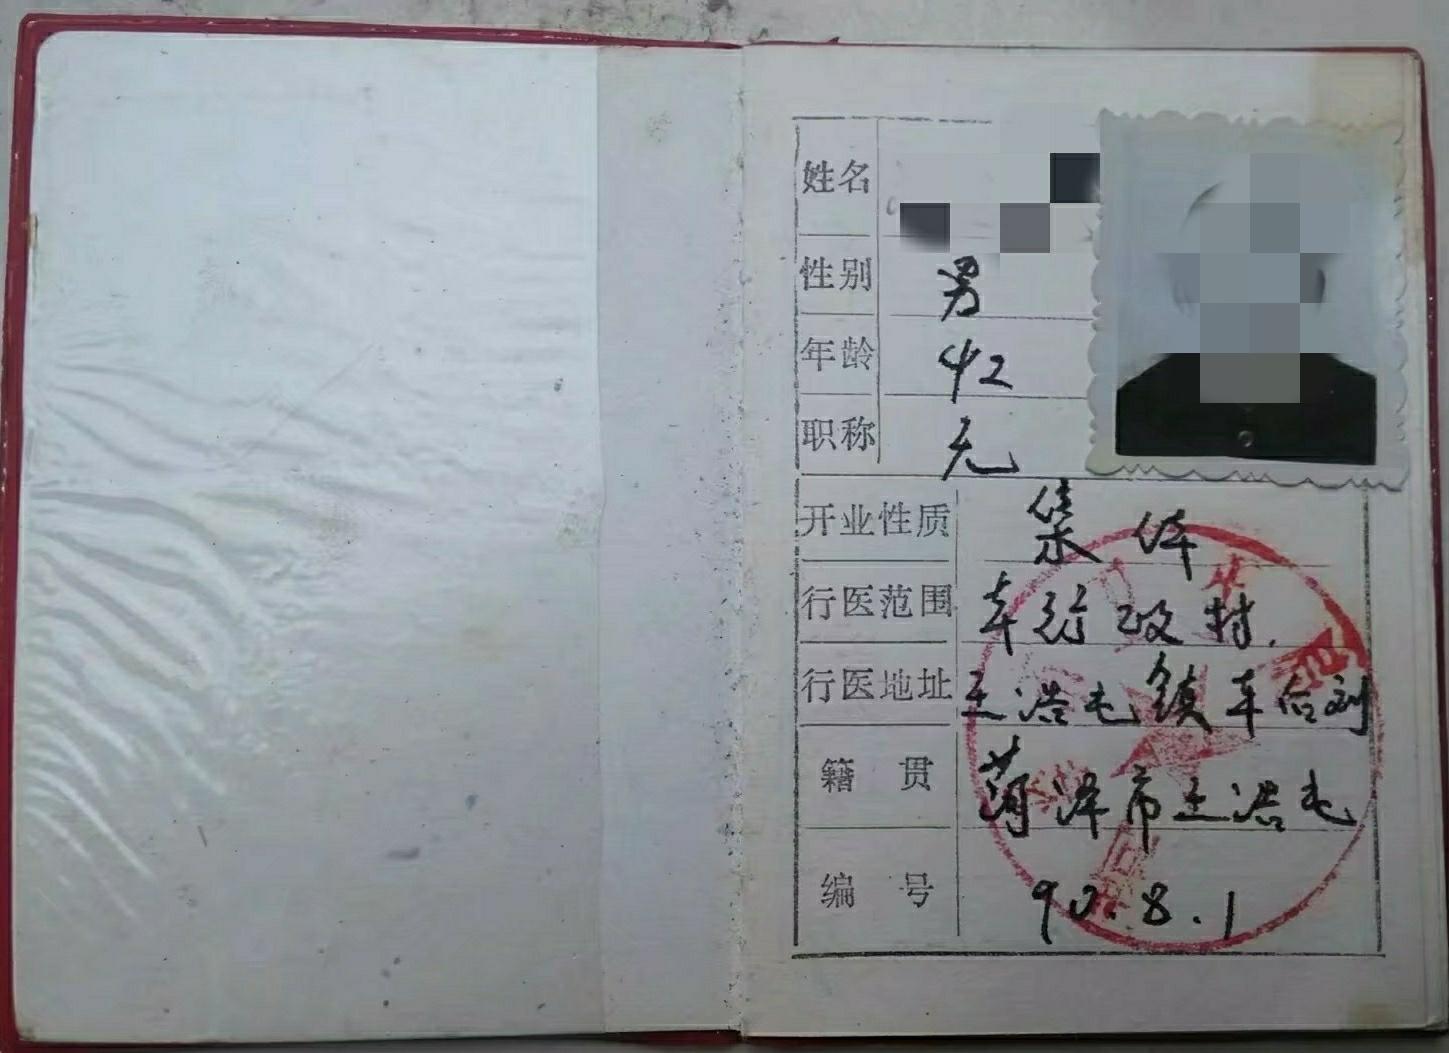 姓名
性别 男
年龄 42
职称 无
开业性质 集体
行医范围 车行政村.
行医地址 王浩屯镇车合刘
籍贯 菏泽市王浩屯
编号 90.8.1